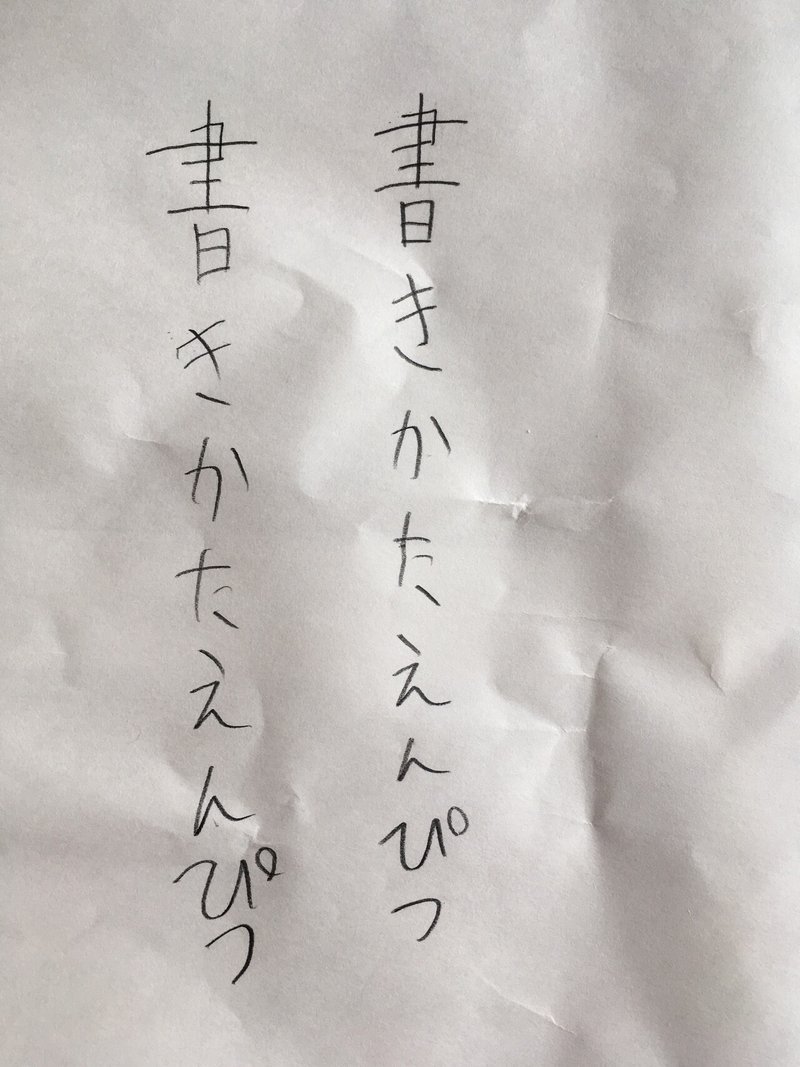 書きかたえんぴつ
書きかたえんぴつ